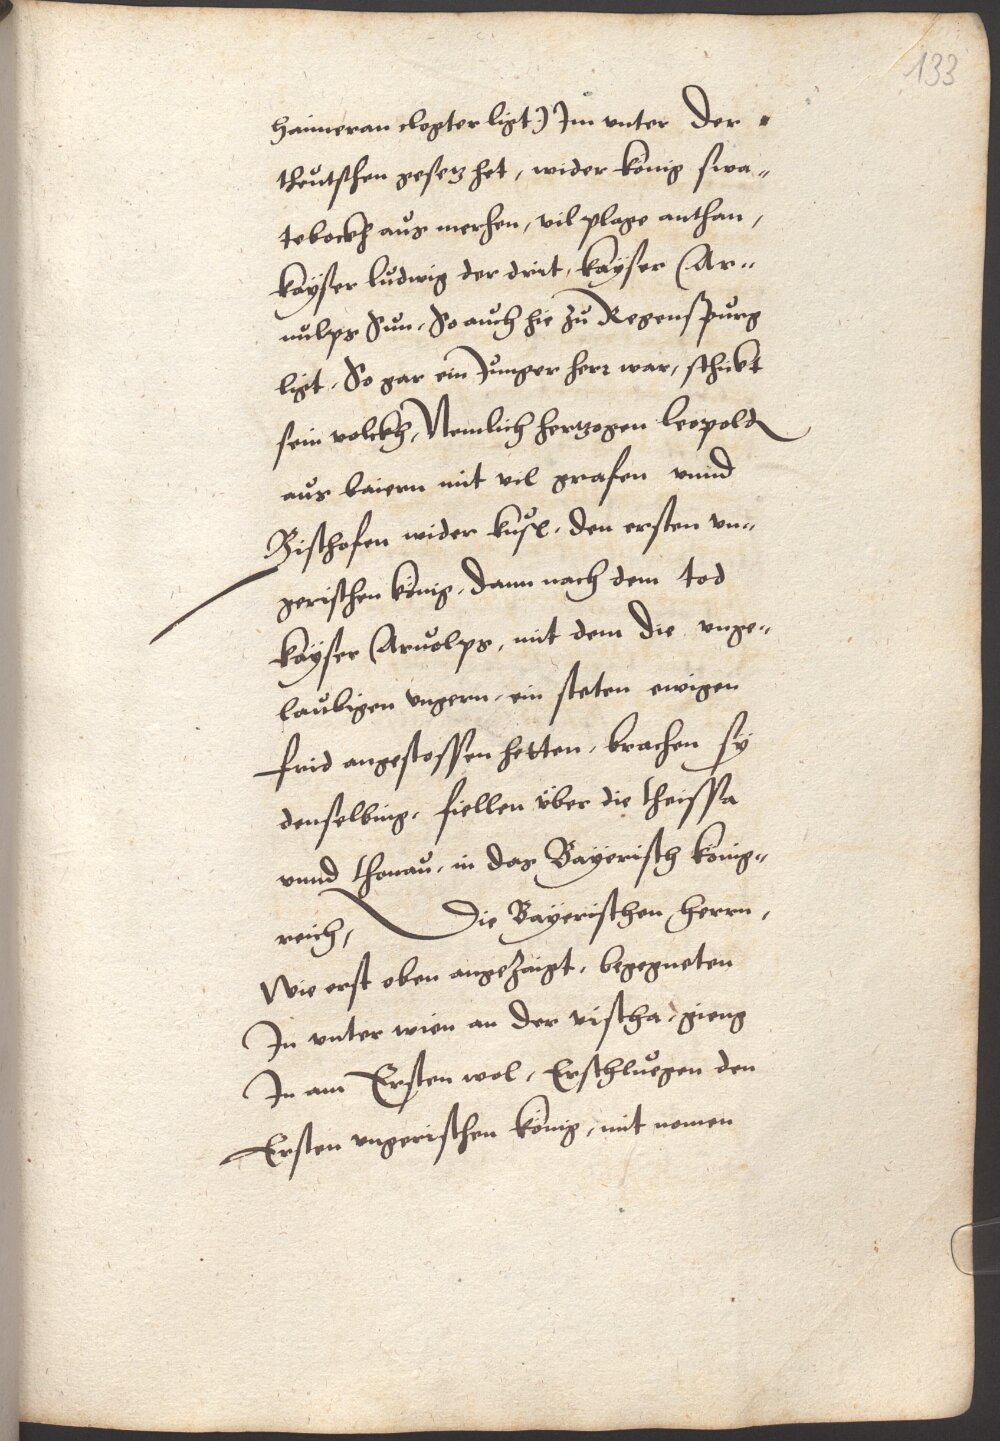 133
haimeran closter ligt) Im unter der
theutschen gesetz het, wider könig swa„
tebockh aus merhen, vil plage anthan,
kayser ludwig der drit, kayser Ar„
nulps Sun, So auch hie zu Regenspurg
ligt, So gar ein Junger herr war, schickt
sein volckh, Nemlich hertzogen leopold
aus baiern mit vil grafen vnnd
Bischofen wider kusl, den ersten vn„
gerischen könig, dann nach dem tod
kayser Arnolps, mit dem die unge„
laubigen vngern, ein steten ewigen
frid angestossen hetten, brachen sy
denselbing, fiellen über die theissa
vnnd thonau, in das Bayerisch könig„
reich, Die Bayerischen herrn,
Wie erst oben angezaigt, begegneten
In vnter wien an der vischa, gieng
In am Ersten wol, Erschluegen den
Ersten vngerischen könig, mit nomen